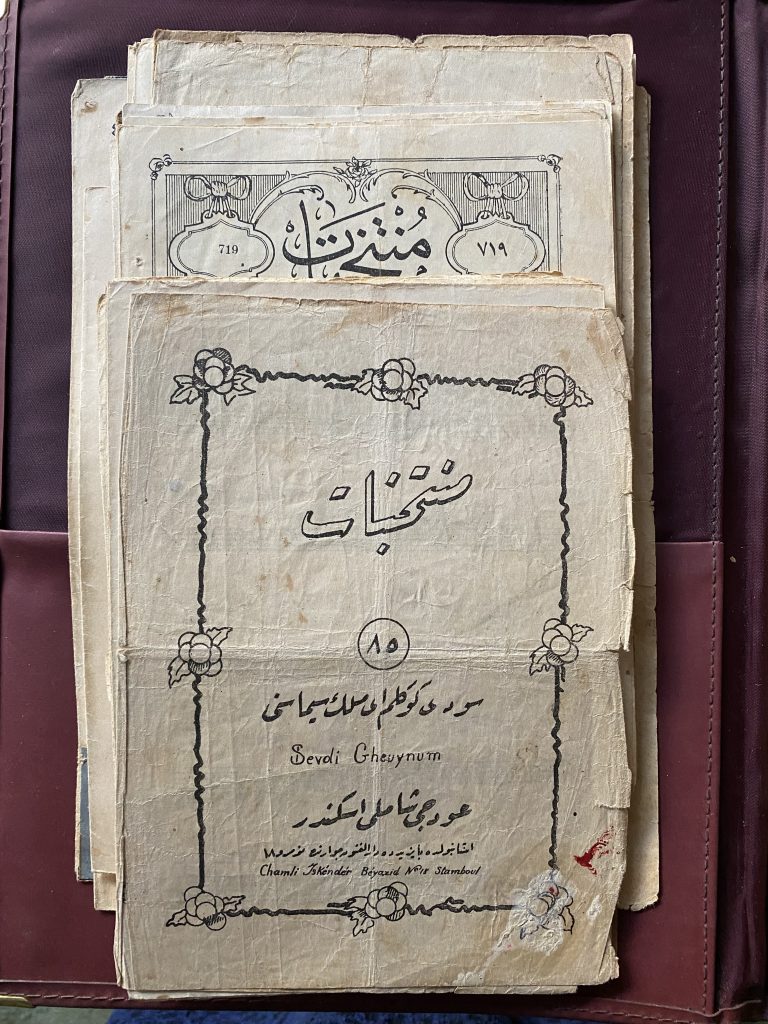 719
منتخبات
٧١٩
منتخبات
٨٥
سودى كوكلم اى ملك سيماسنى
Sevdi Gheuynum
عودجى شاملى اسكندر
استانبولده بايزيدده دار الفنون جوارنده نومرو ١٨
Chamli Iskénder Béyazid Nº 18 Stamboul